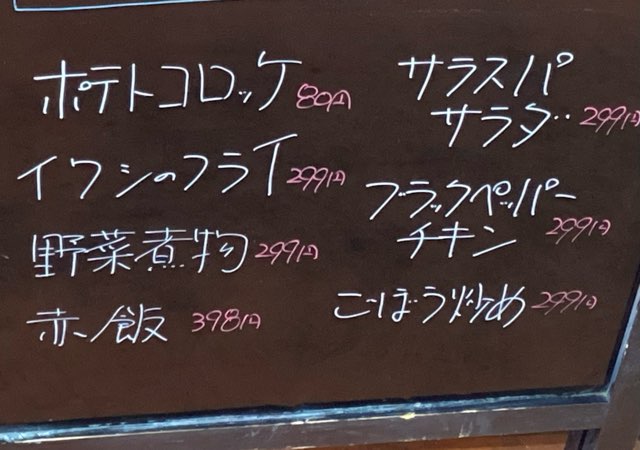 ポテトコロッケ 80円
イワシのフライ 299円
野菜煮物 299円
赤飯 398円
サラスパ
サラダ 299円
ブラックペッパー
チキン 299円
ごぼう炒め 299円